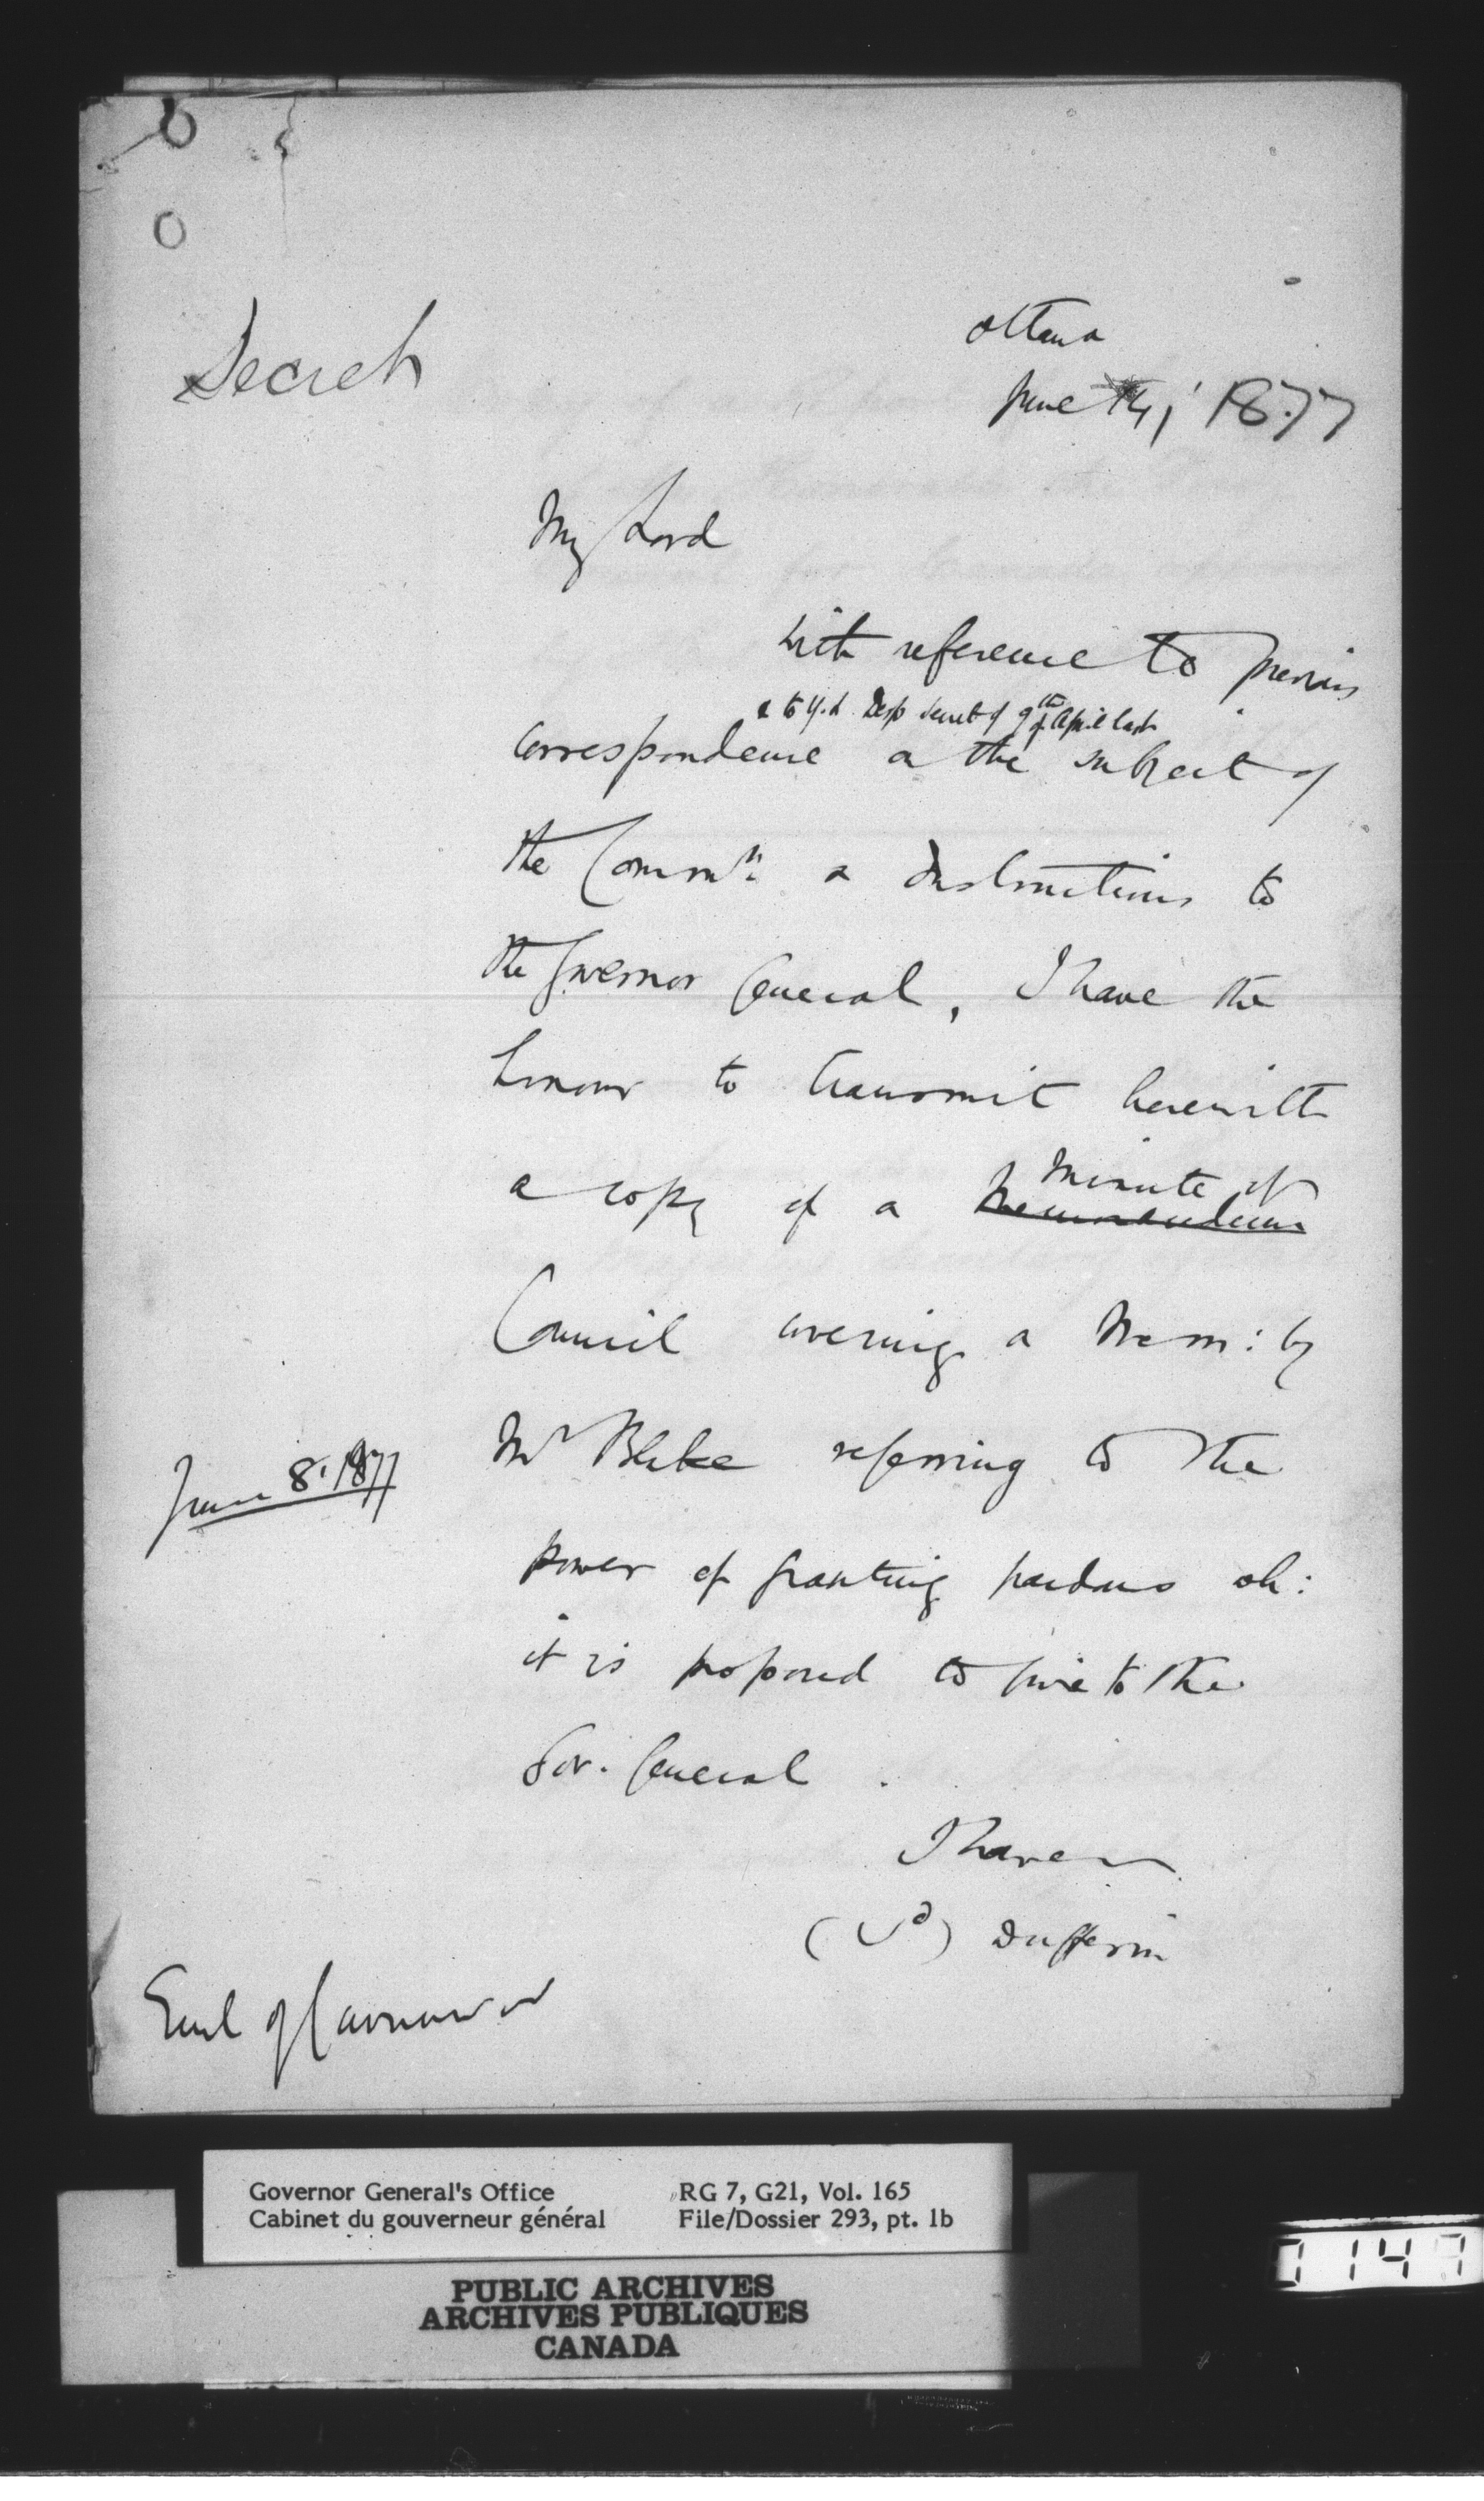 Secret
Ottawa
June 14, 1877
My Lord
With reference to previous
& to Y.L. Desp Secret of 9th of April last
correspondence on the subject of
the Commn. & Instructions to
the Governor General, I have the
honour to transmit herewith
Minute of
a copy of a Memorandum
Council covering a Mem: by
June 8. 1877
Mr Blake referring to the
power of granting pardons wh:
it is proposed to give to the
Gov. General.
I have
(Sd) Dufferin
Earl of Carnarvon
Governor General's Office
Cabinet du gouverneur général
RG 7, G21, Vol. 165
File/Dossier 293, pt. 1b
PUBLIC ARCHIVES
ARCHIVES PUBLIQUES
CANADA